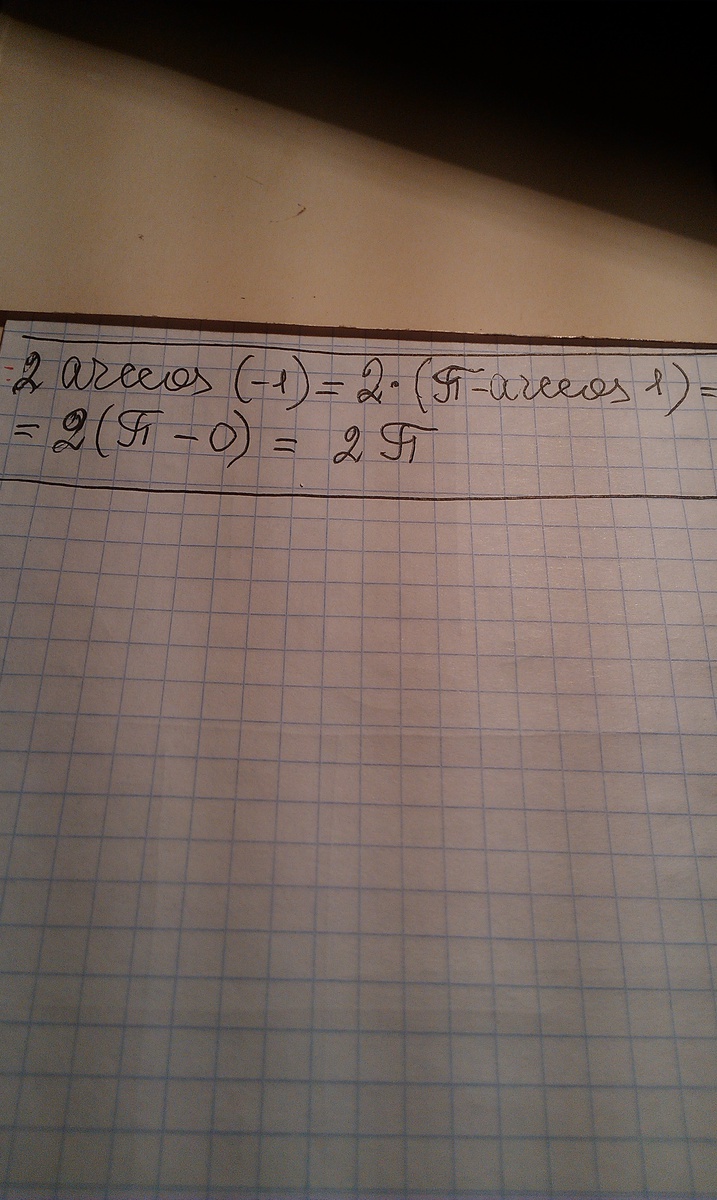 2 arccos (-1) = 2·(π - arccos 1) =
= 2(π - 0) = 2π